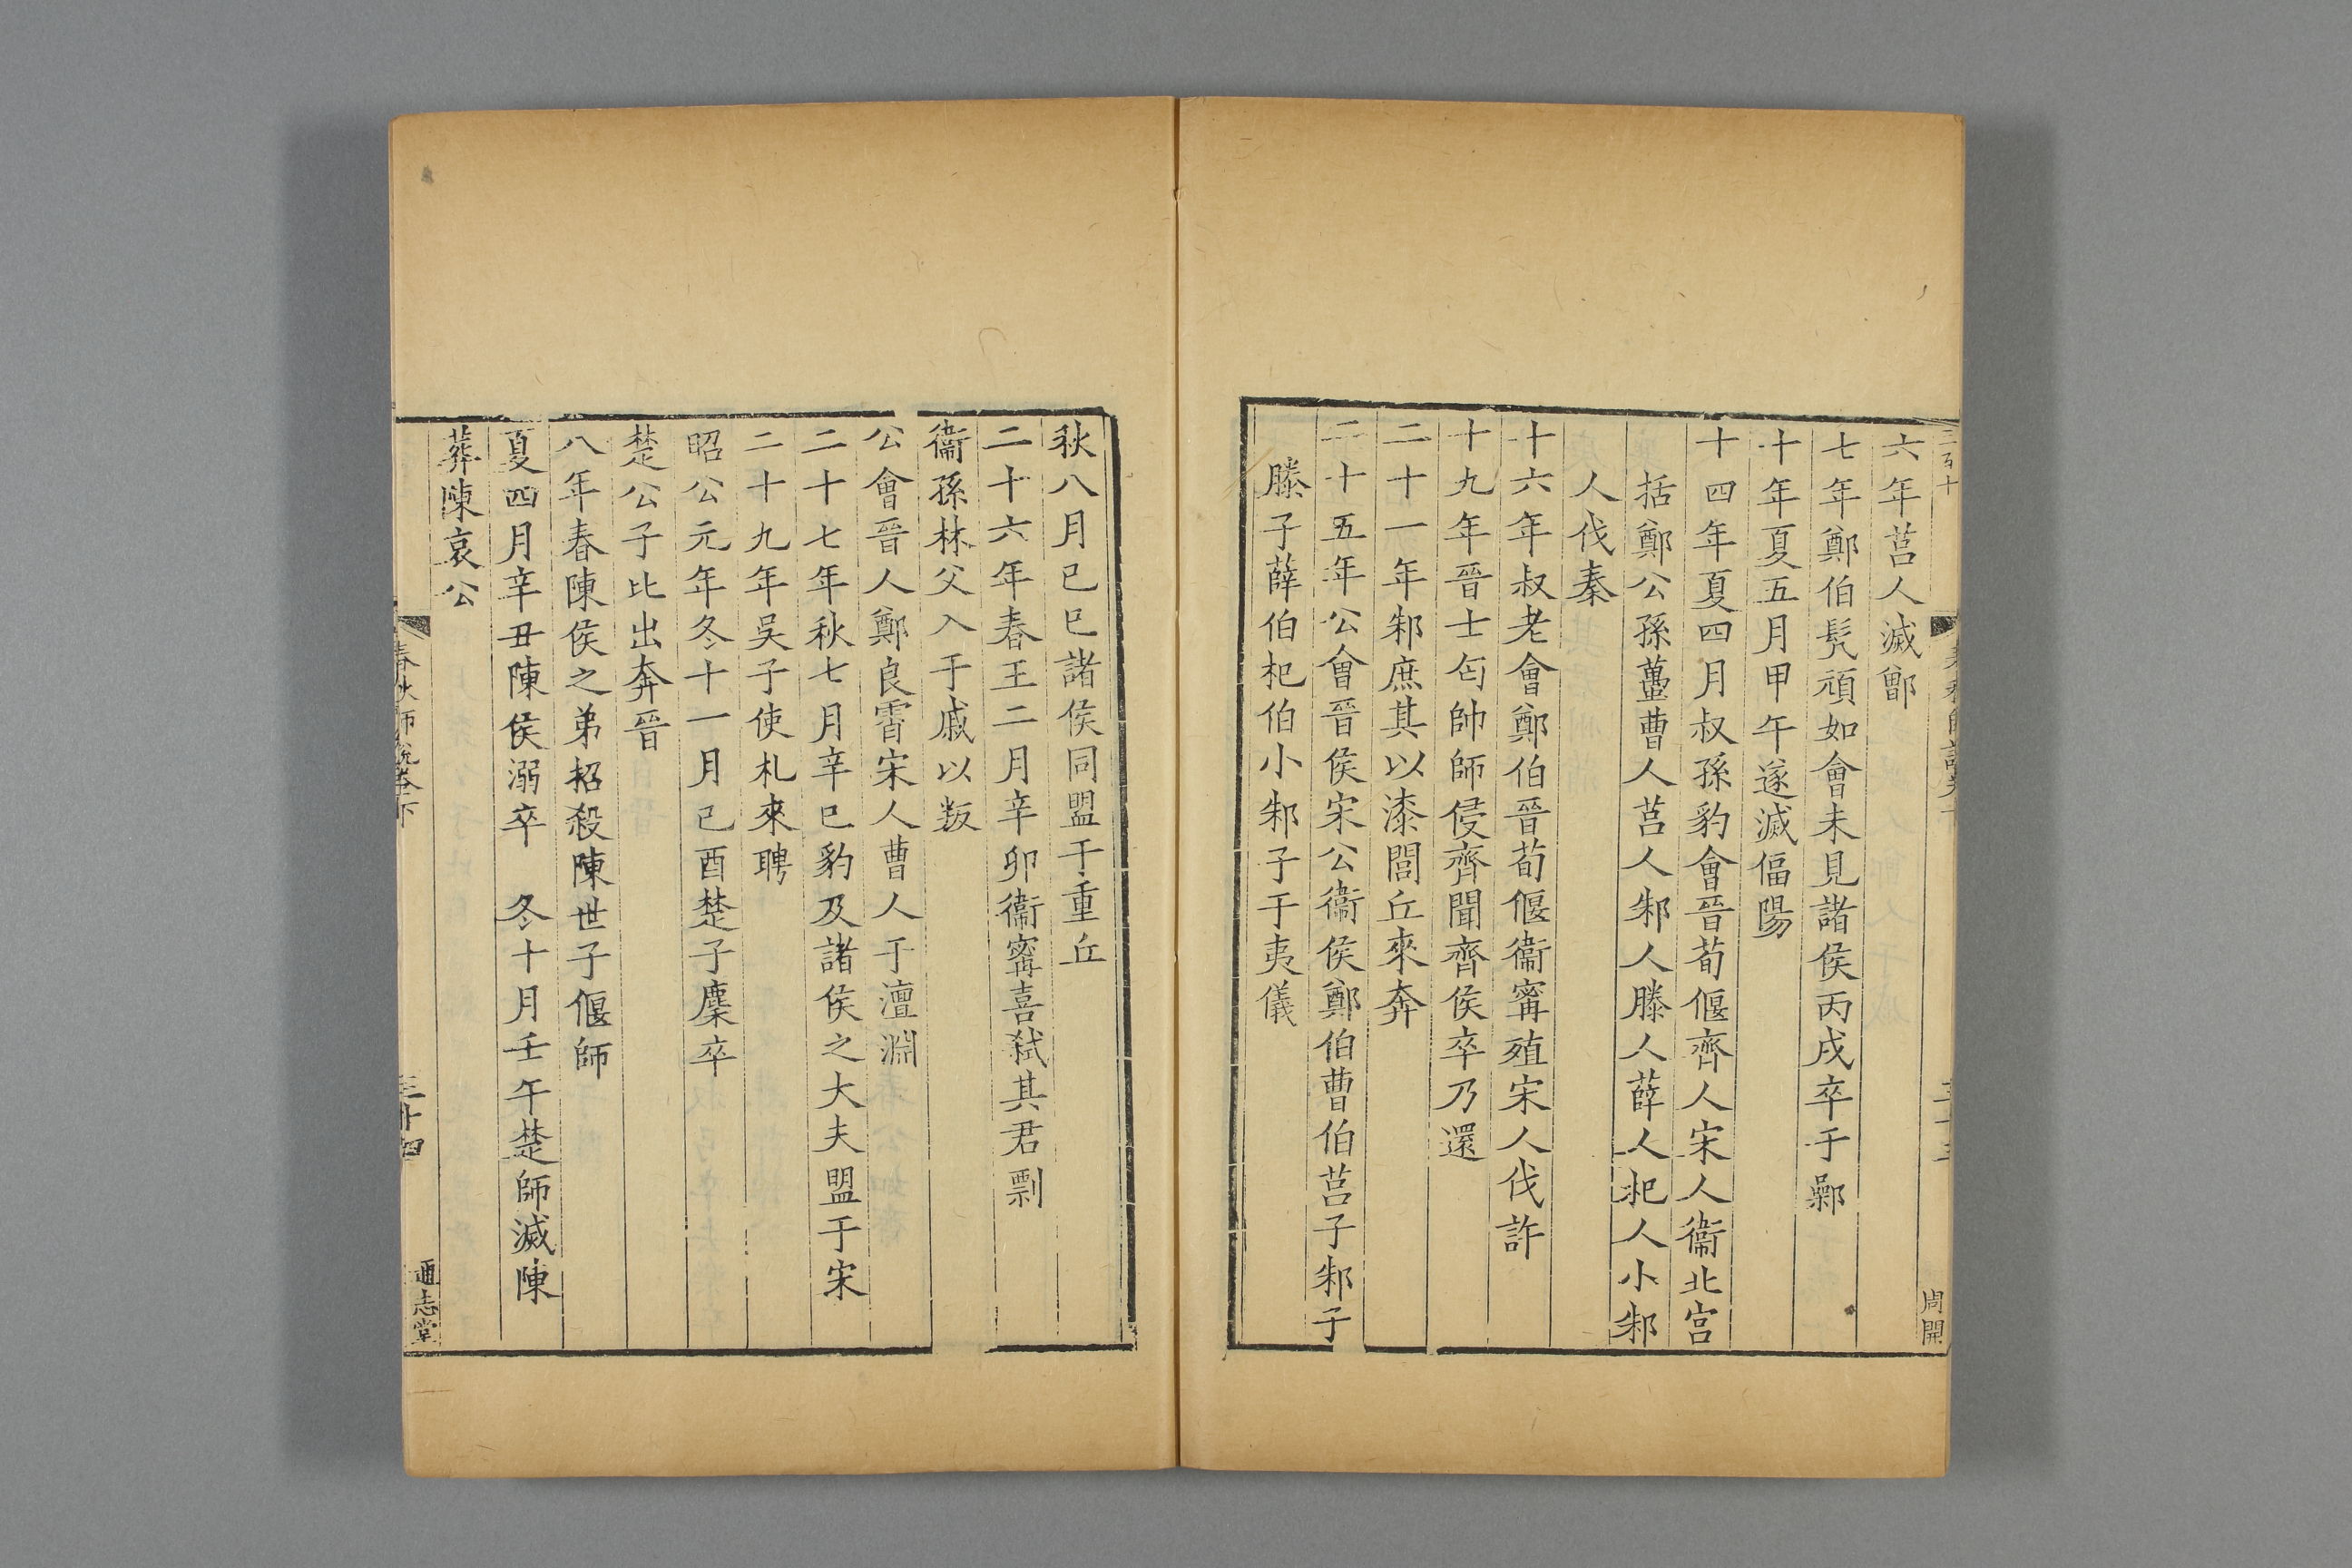 六年莒人滅鄫
七年鄭伯髠頑如會未見諸侯丙戌卒于鄵
十年夏五月甲午遂滅偪陽
十四年夏四月叔孫豹會晉荀偃齊人宋人衞北宫
括鄭公孫蠆曹人莒人邾人滕人薛人杞人小邾
人伐秦
十六年叔老會鄭伯晉荀偃衞甯殖宋人伐許
十九年晉士匄帥師侵齊聞齊侯卒乃還
二十一年邾庶其以漆閭丘來奔
二十五年公會晉侯宋公衞侯鄭伯曹伯莒子邾子
滕子薛伯杞伯小邾子于夷儀
秋八月己巳諸侯同盟于重丘
二十六年春王二月辛卯衞甯喜弑其君剽
衞孫林父入于戚以叛
公會晉人鄭良霄宋人曹人于澶淵
二十七年秋七月辛巳豹及諸侯之大夫盟于宋
二十九年吳子使札來聘
昭公元年冬十一月己酉楚子麇卒
楚公子比出奔晉
八年春陳侯之弟招殺陳世子偃師
夏四月辛丑陳侯溺卒　冬十月壬午楚師滅陳
葬陳哀公
春秋師說卷下
三十四
通志堂